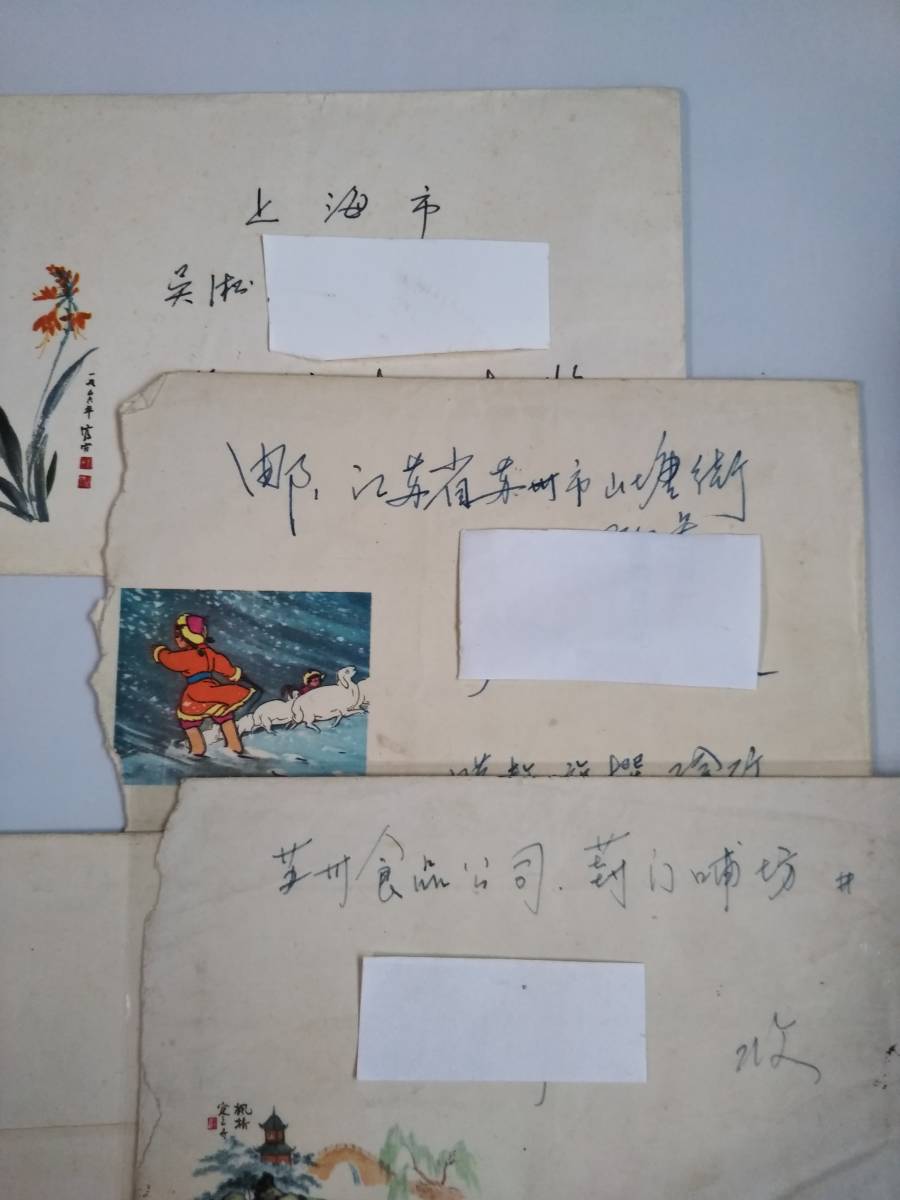 上海市
吴淞
一九六六年
邮：江苏省苏州市山塘街
苏州食品公司.葑门哺坊
收
枫桥